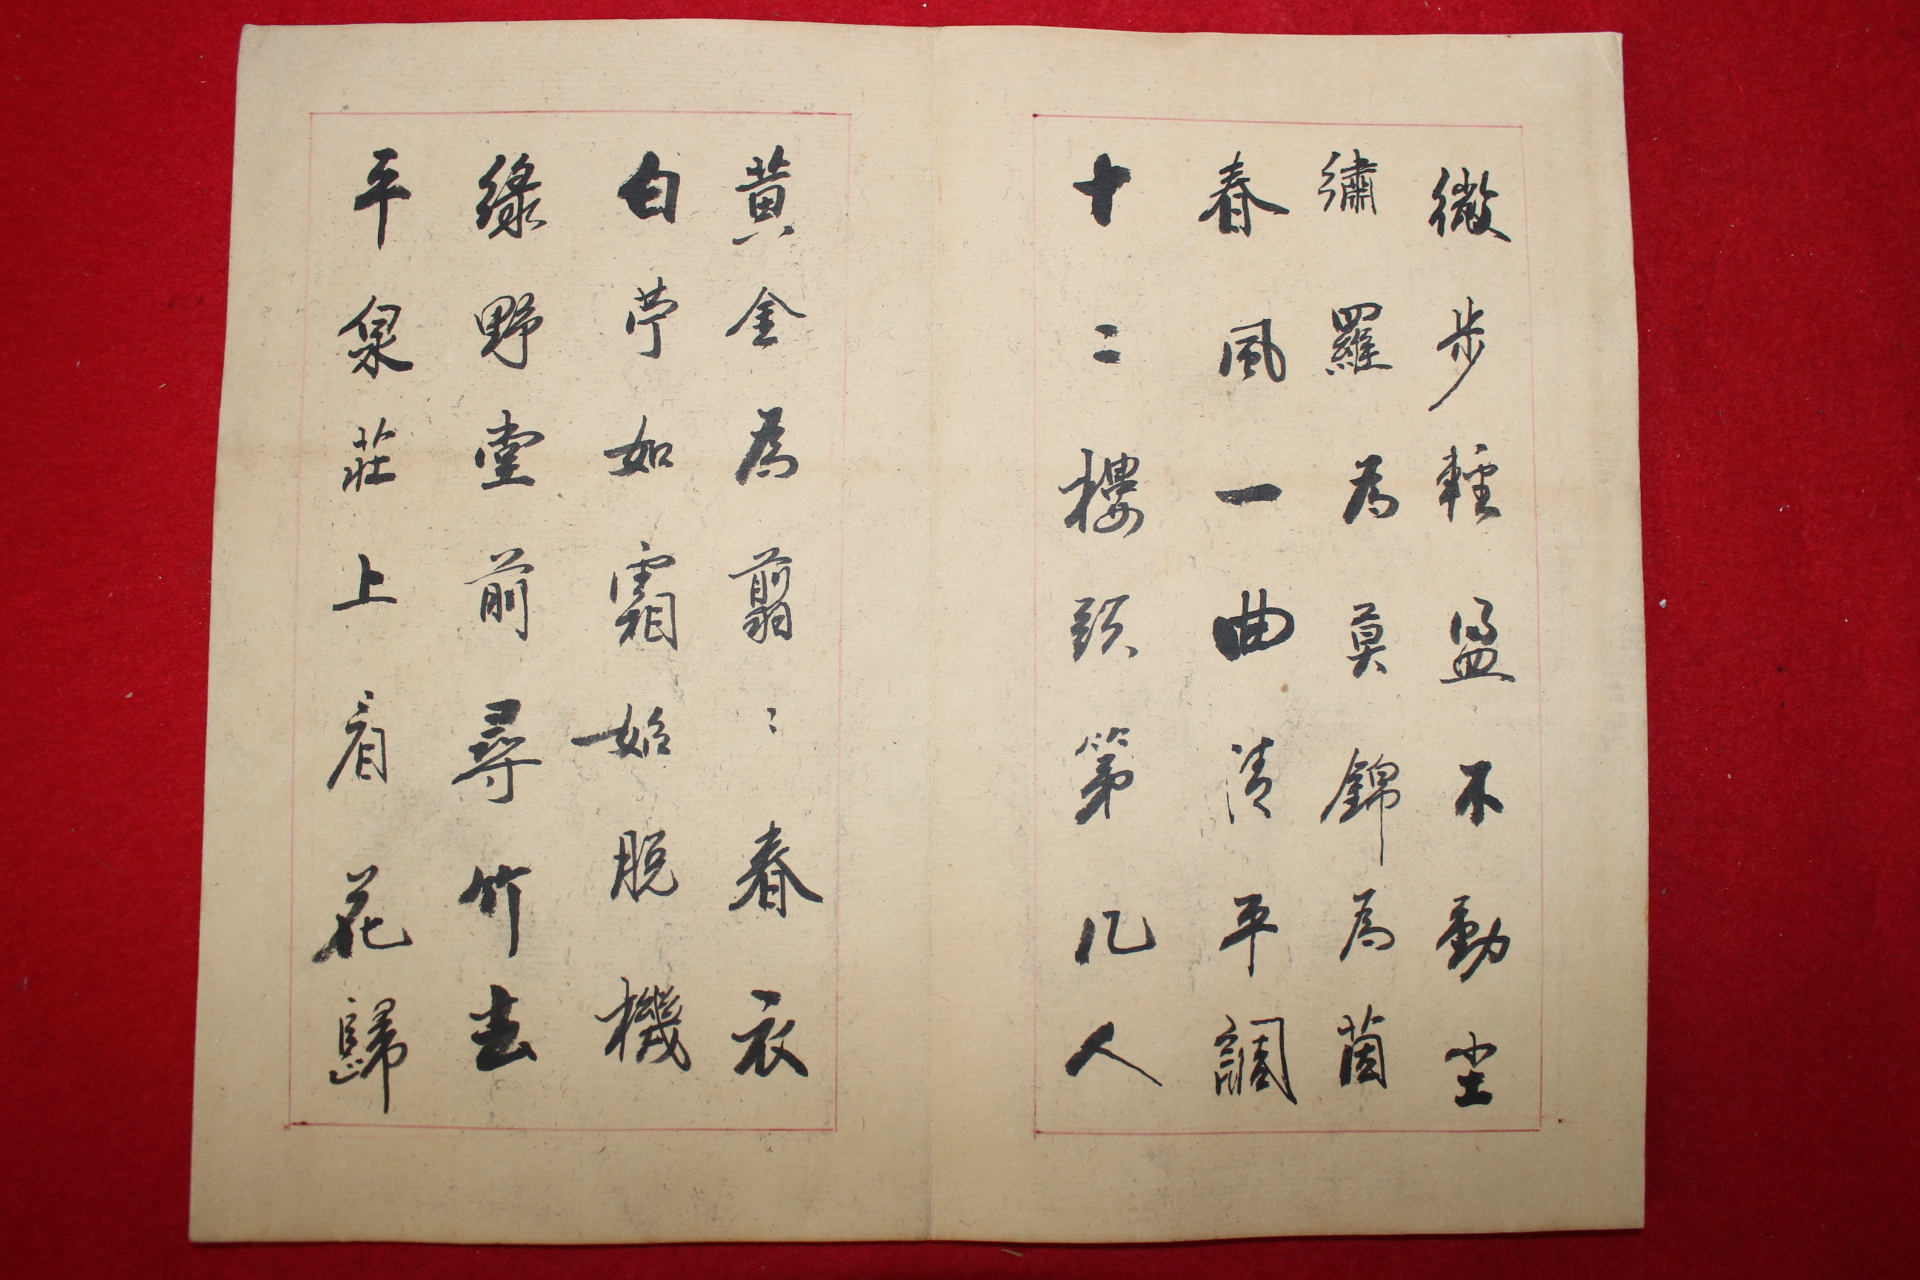 微步輕盈不動尘
繡羅為莫錦為茵
春風一曲清平調
十二樓頭第几人
黄金為翦〻春衣
白苧如霜始脱機
綠野堂前尋竹去
平泉莊上看花歸